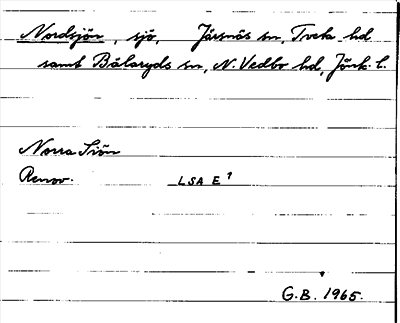 Nordsjön, sjö, Järsnäs sn, Tveta hd
samt Bälaryds sn, N. Vedbo hd, Jönk. l.
Norra Siön
Renov. LSA E¹
G.B. 1965.